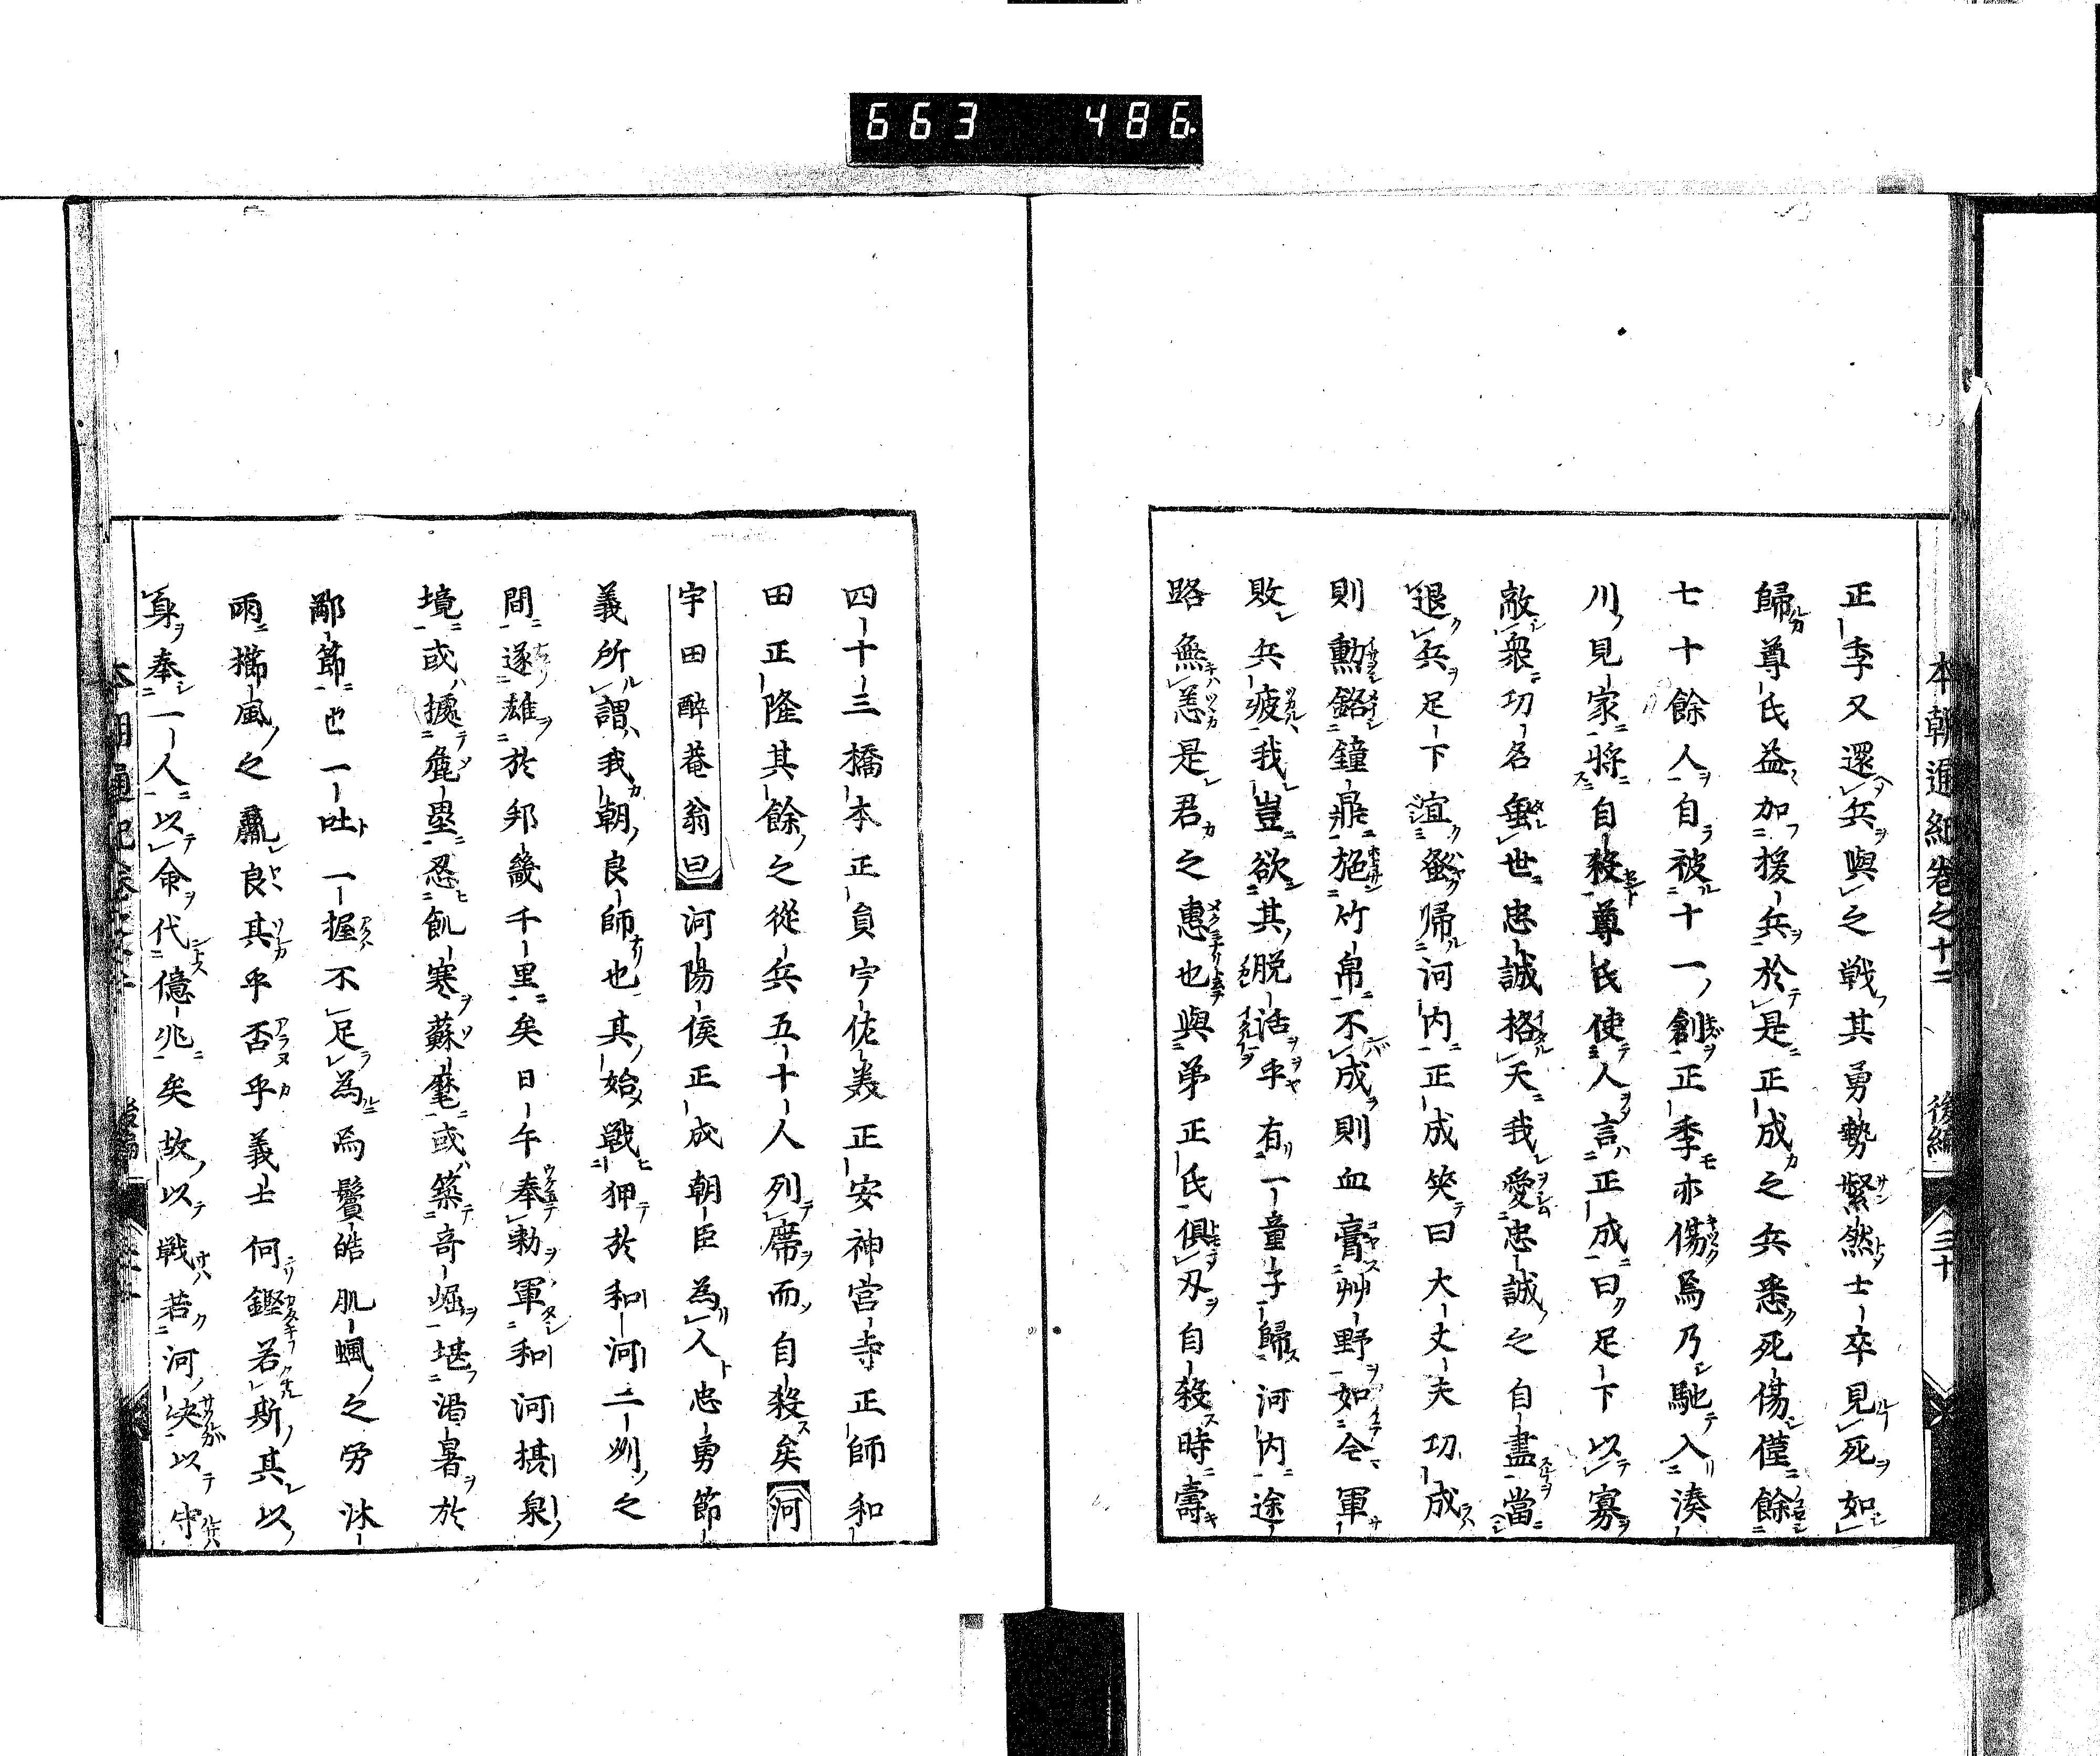 663 486
本朝通紀卷之十二 後編 三十
正季又還兵與之戰其勇勢緊然士卒見死如
歸尊氏益加援兵於是正成之兵悉死傷僅餘
七十餘人自被十一創正季亦傷焉乃馳入湊
川見家將自殺尊氏使人言正成曰足下以寡
敵衆功名垂世忠誠格天我愛忠誠之自盡當
退兵足下宜發帰河内正成笑曰大丈夫功成
則勳銘鐘鼎施竹帛不成則血膏艸野如今軍
敗兵疲我豈欲其脱活乎有一童子歸河内途
路無恙是君之惠也與弟正氏俱刃自殺時壽
四十三橋本正員宇佐美正安神宮寺正師和
田正隆其餘之從兵五十人列席而自殺矣河
宇田醉菴翁曰河陽侯正成朝臣為人忠勇節
義所謂我朝良師也其始戰狎於和河二州之
間遂雄於邦畿千里矣日午奉勅軍和河摂泉
境或據麁塁忍飢寒蘇麾或築奇崛堪渇暑於
鄙節也一吐一握不足為焉鬢皓肌颯之労沐
雨櫛風之亂良其乎否乎義士何鏗若斯其以
身奉一人以命代億兆矣故以戦若河決以守